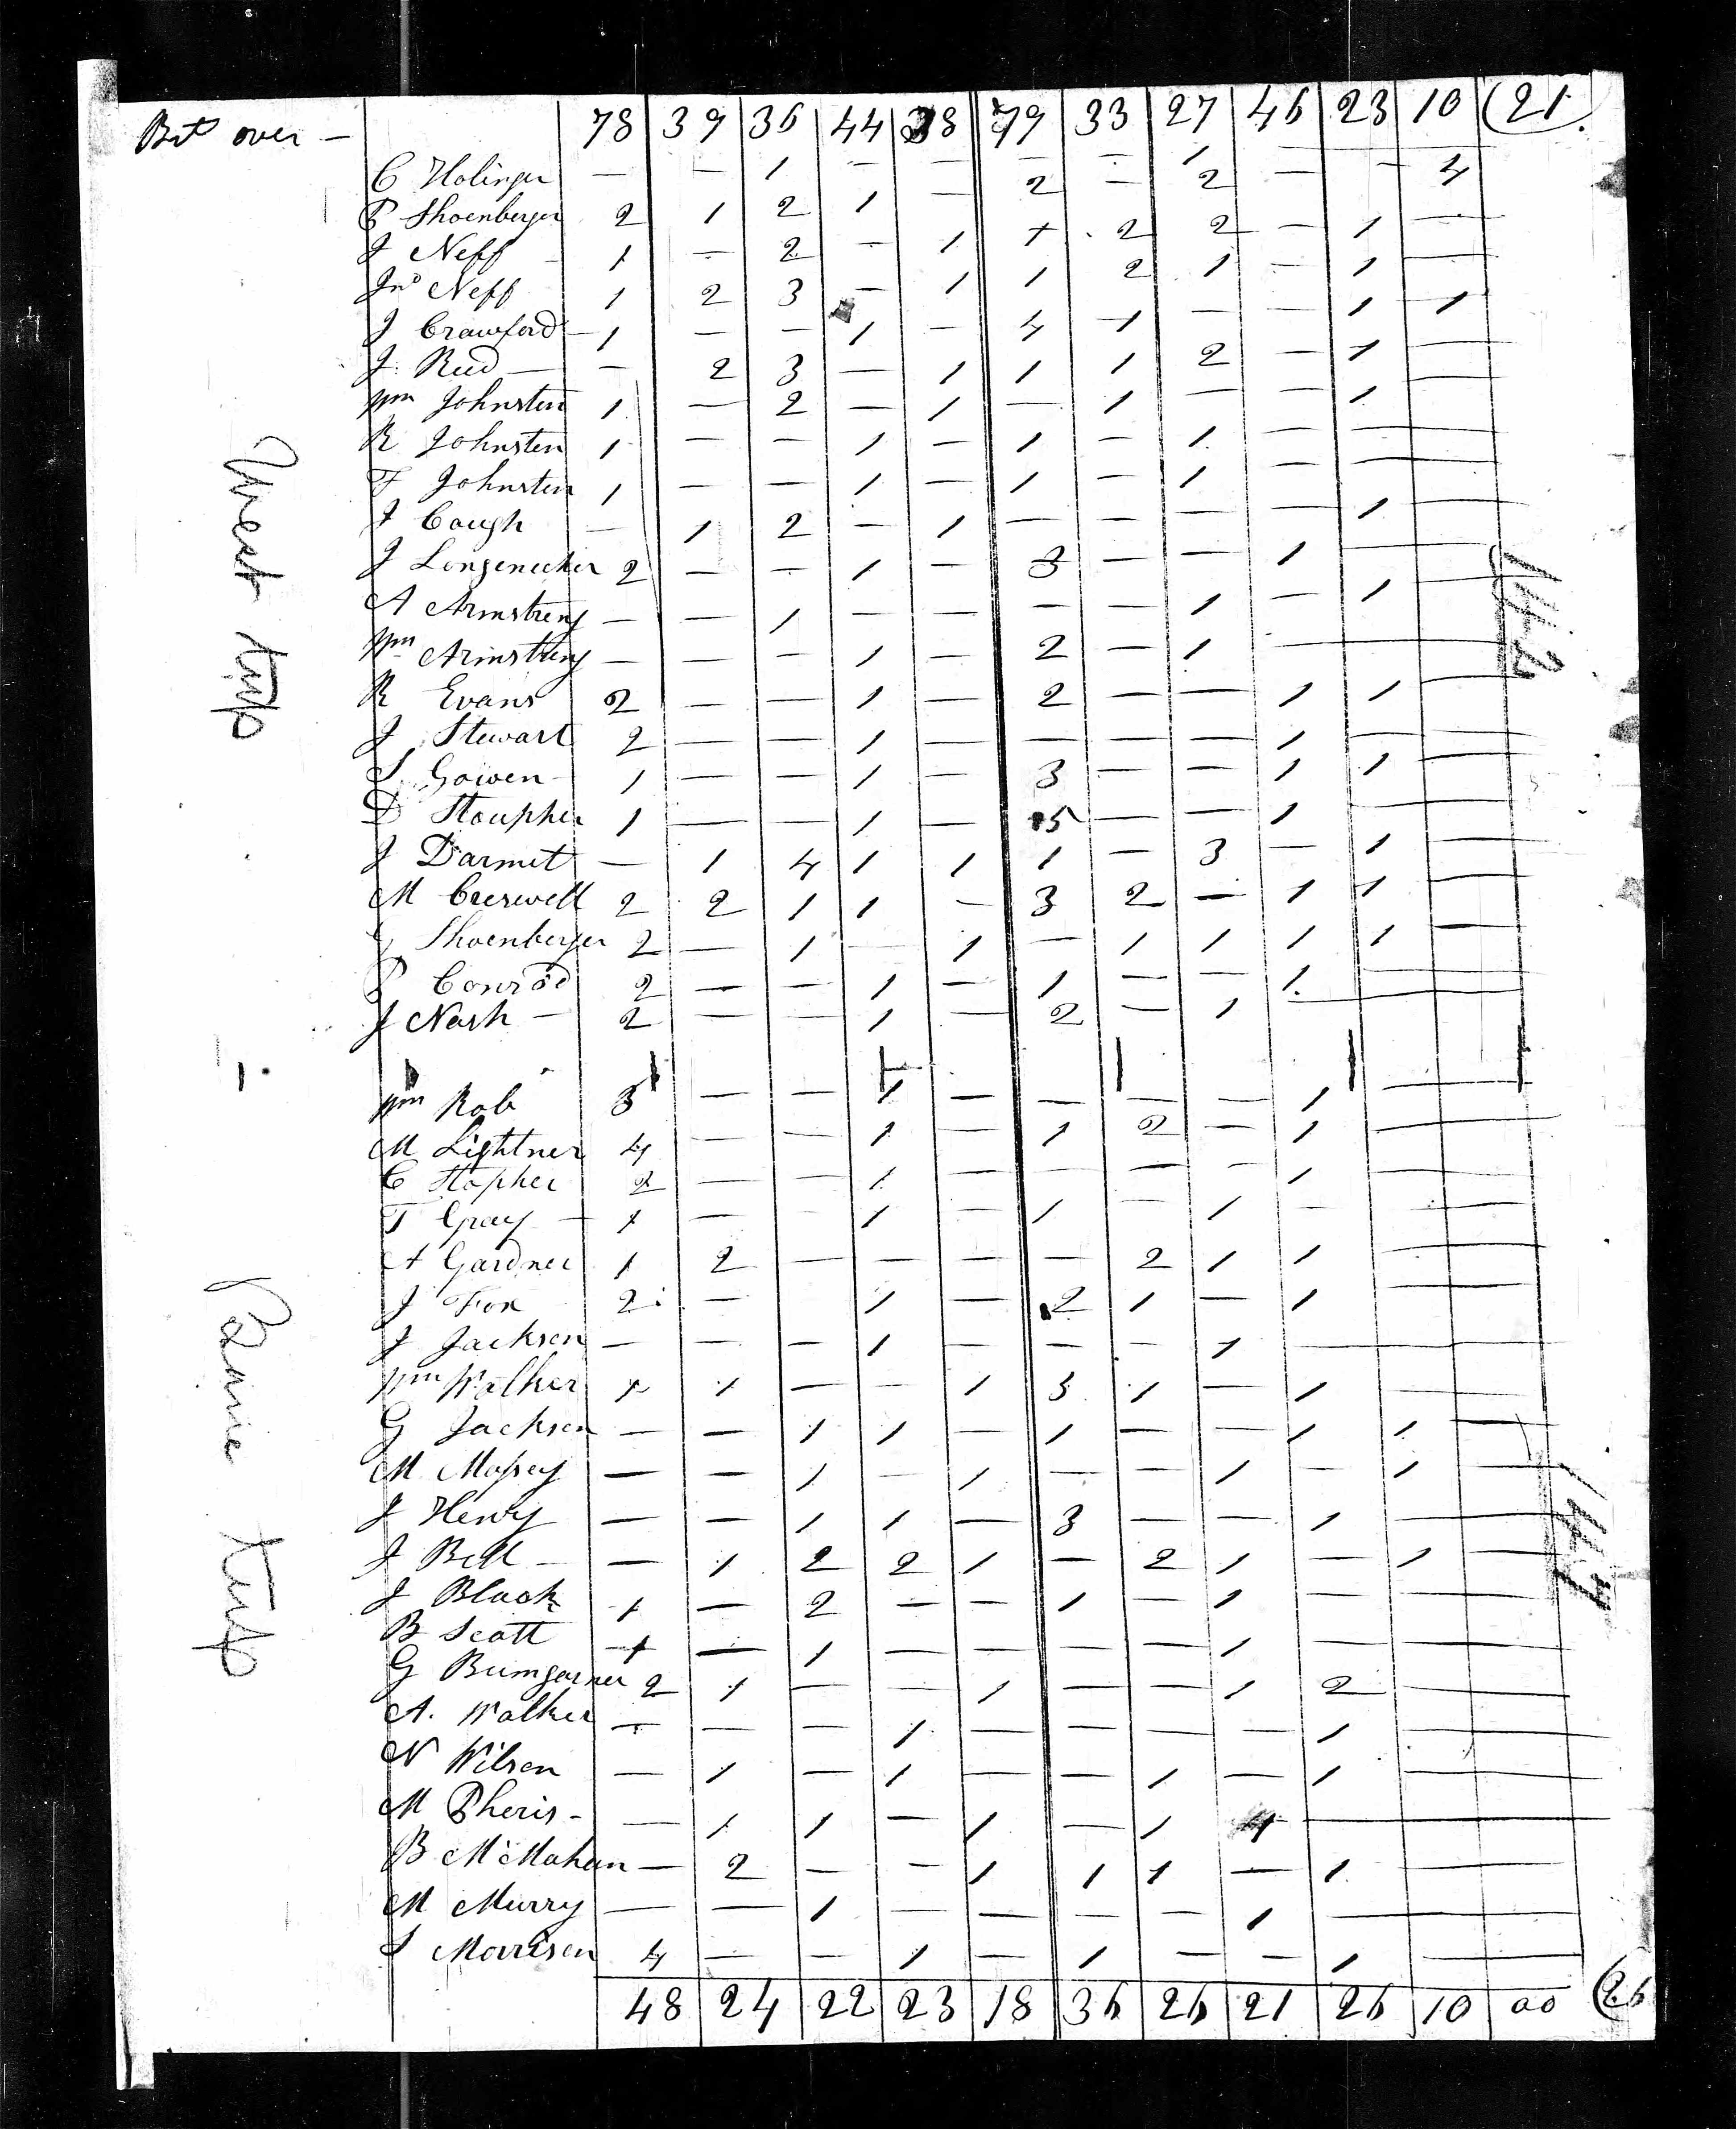 Brt over — 78 39 36 44 38 79 33 27 46 23 10 (21.
C Holinger — — 1 — — — — 1 — — —
P Shoenberger 2 1 2 1 — 2 — 2 — — 4
J Neff — 1 — 2 — 1 1 2 2 — 1 —
Jno Neff 1 2 3 — 1 1 2 1 — 1 —
J Crawford 1 — — 1 — 4 1 — — 1 1
J Reed — — 2 3 — 1 1 1 2 — 1 —
Wm Johnsten 1 — 2 — 1 — 1 — — 1 —
R Johnsten 1 — — 1 — 1 — 1 — — —
F Johnsten 1 — — 1 — 1 — 1 — — —
J Cough — 1 2 — 1 — — — — 1 —
J Longenecker 2 — — 1 — 3 — — 1 — —
A Armstreng — — 1 — — — — 1 — 1 —
Wm Armstreng — — — 1 — 2 — 1 — — —
R Evans 2 — — 1 — 2 — — 1 1 —
J Stewart 2 — — 1 — — — — 1 — —
S Gowen 1 — — 1 — 3 — — 1 1 —
D Stoupher 1 — — 1 — 5 — — 1 — —
J Darmit — 1 4 1 1 1 — 3 — 1 —
M Creswell 2 2 1 1 — 3 2 — 1 1 —
Shoenberger 2 — 1 — 1 — 1 1 1 1 —
P Conrod 2 — — 1 — 1 — — 1 — —
J Nash — 2 — — 1 — 2 — 1 — — —
West twp
142
Wm Rob 3 — — 1 — — — — 1 — —
M Lightner 4 — — 1 — 1 2 — 1 — —
C Stopher 2 — — 1 — — — — 1 — —
T Gray — 1 — — 1 — 1 — 1 — — —
A Gardner 1 2 — — — — 2 1 1 — —
J Fox 2 — — 1 — 2 1 — 1 — —
J Jacksen — — — 1 — — — 1 — — —
Wm Walker 1 1 — — 1 3 1 — 1 — —
G Jacksen — — 1 1 — 1 — — 1 1 —
M Massey — — 1 — 1 — — 1 — 1 —
J Henry — — 1 1 — 3 — — 1 — —
J Bell — — 1 2 2 1 — 2 1 — 1 —
J Black 1 — 2 — — 1 — 1 — — —
B Scott 1 — 1 — — — — 1 — — —
G Bumgarner 2 1 — — 1 — — 1 2 — —
A. Walker — — — 1 — — — — 1 — —
N Wilsen — 1 — 1 — — 1 — 1 — —
M Pheris - — 1 1 — 1 — 1 1 — — —
B McMahan — 2 — — 1 1 1 — 1 — —
M Murry — — 1 — — — — 1 — — —
S Morrisen 4 — — 1 — 1 — — 1 — —
Barre twp
147
48 24 22 23 18 36 26 21 26 10 00 (26